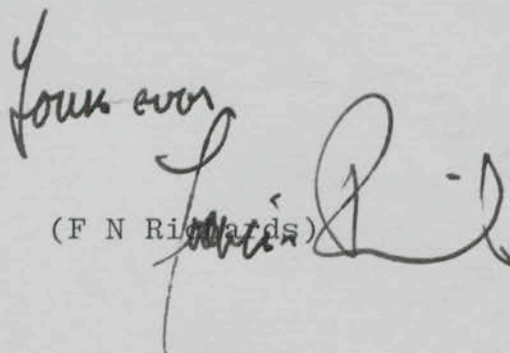 Yours ever
Francis Richards
(F N Richards)